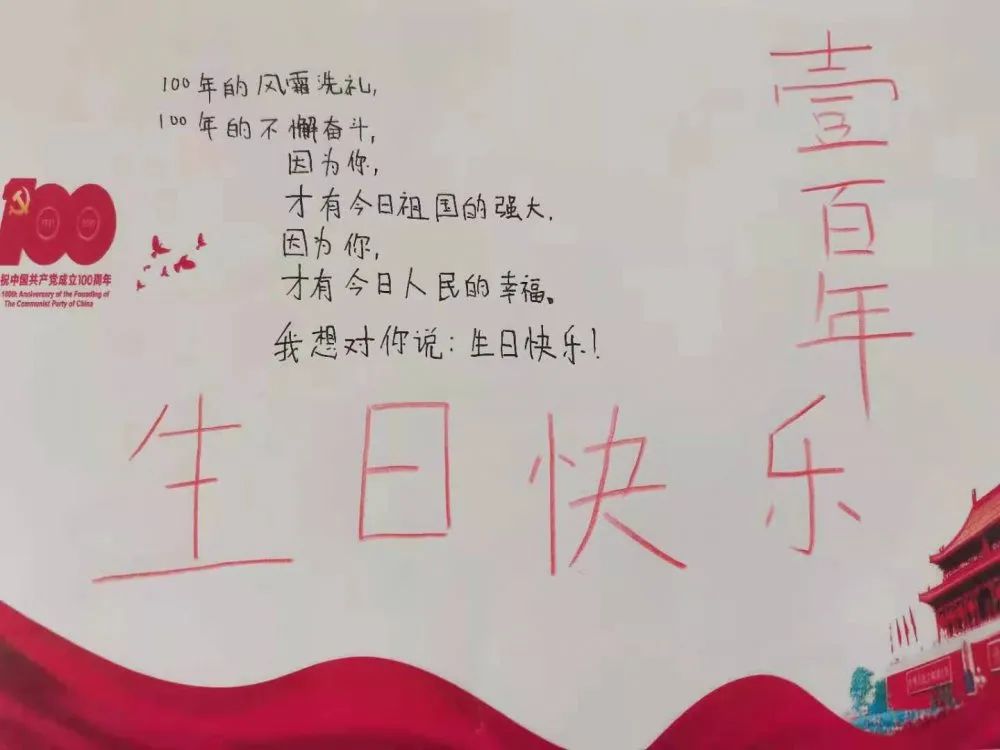 100年的风霜洗礼,
100年的不懈奋斗,
因为你,
才有今日祖国的强大,
因为你,
才有今日人民的幸福。
我想对你说:生日快乐!
壹百年
生日快乐
100
祝中国共产党成立100周年
100th Anniversary of the Founding of
The Communist Party of China